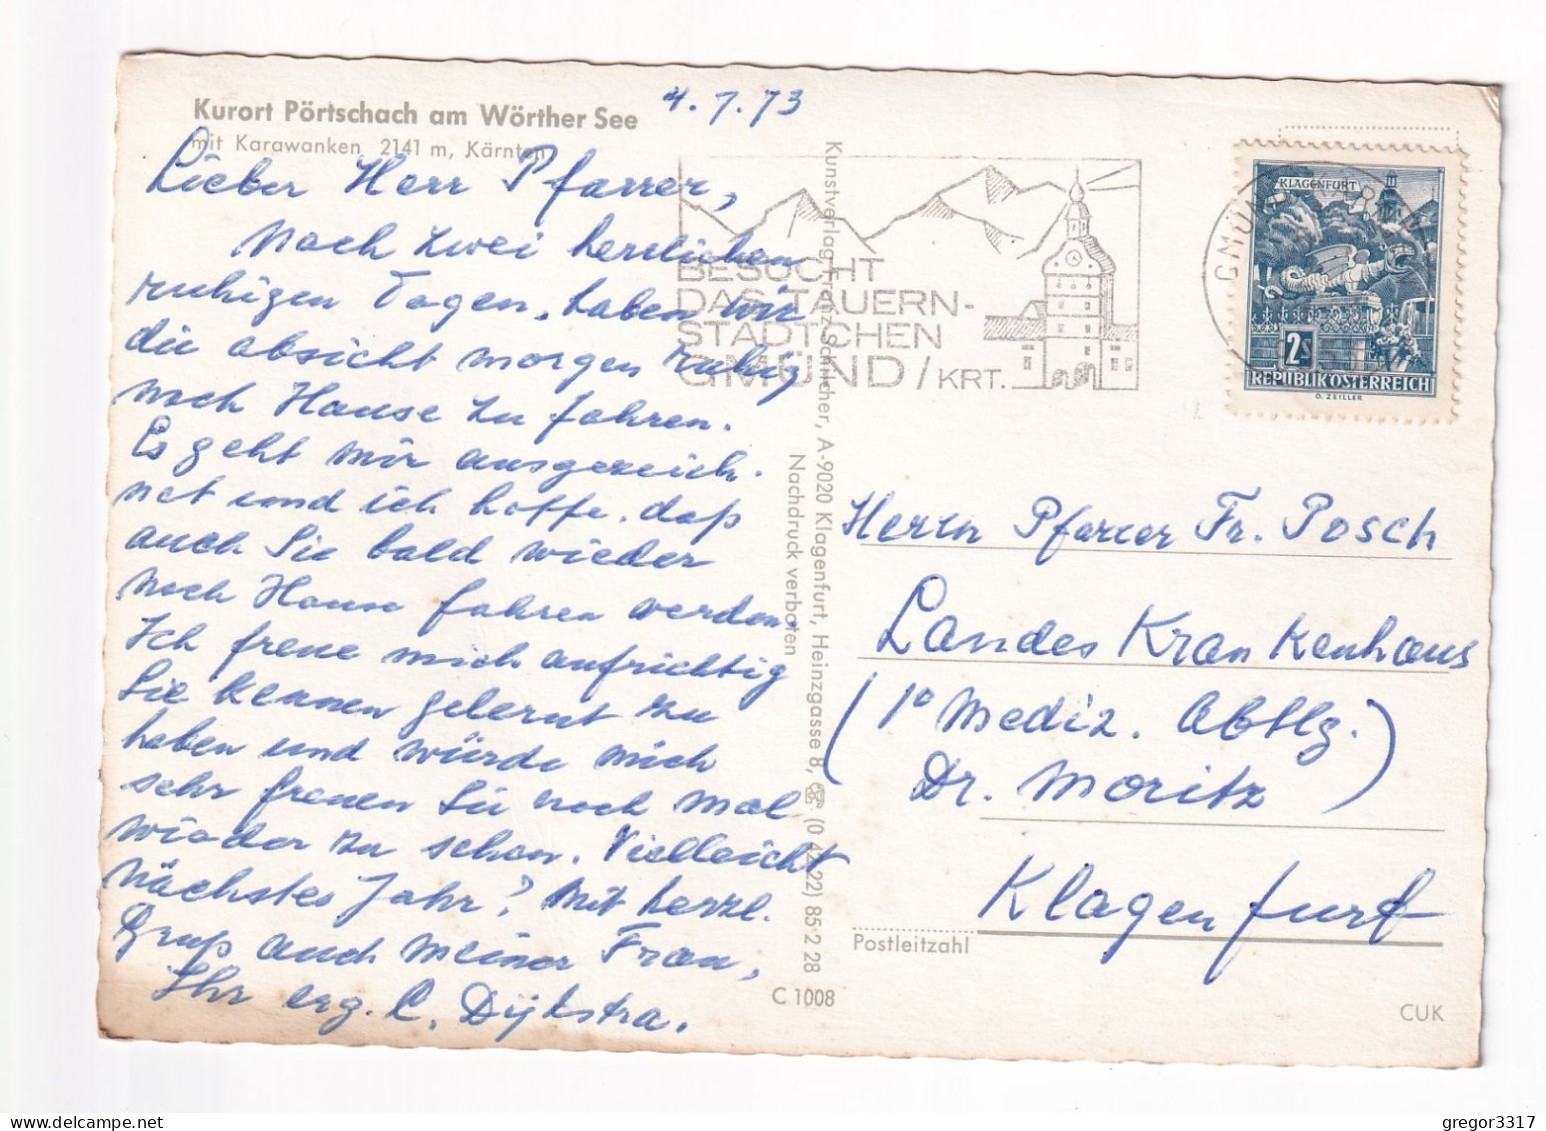 Kurort Pörtschach am Wörther See
mit Karawanken 2141 m, Kärnten
4.7.73
Lieber Herr Pfarrer,
Nach zwei herrlichen
ruhigen Tagen, haben wir
die absicht morgen ruhig
nach Hause zu fahren.
Es geht mir ausgezeich-
net und ich hoffe, daß
auch Sie bald wieder
nach Hause fahren werden.
Ich freue mich aufrichtig
Sie kennen gelernt zu
haben und würde mich
sehr freuen Sie noch mal
wieder zu sehen. Vielleicht
nächstes Jahr? Mit herzl.
Gruß auch meiner Frau,
Ihr erg. C. Dijkstra.
Kunstverlag Franz Schilcher, A-9020 Klagenfurt, Heinzgasse 8, ☏ (0 42 22) 85 2 28
Nachdruck verboten
C 1008
BESUCHT
DAS TAUERN-
STÄDTCHEN
GMÜND/KRT.
KLAGENFURT
2S
REPUBLIK ÖSTERREICH
O. ZEILLER
Herrn Pfarrer Fr. Posch
Landes Krankenhaus
(1º Mediz. Abtlg.)
Dr. Moritz
Klagenfurt
Postleitzahl
CUK
gregor3317